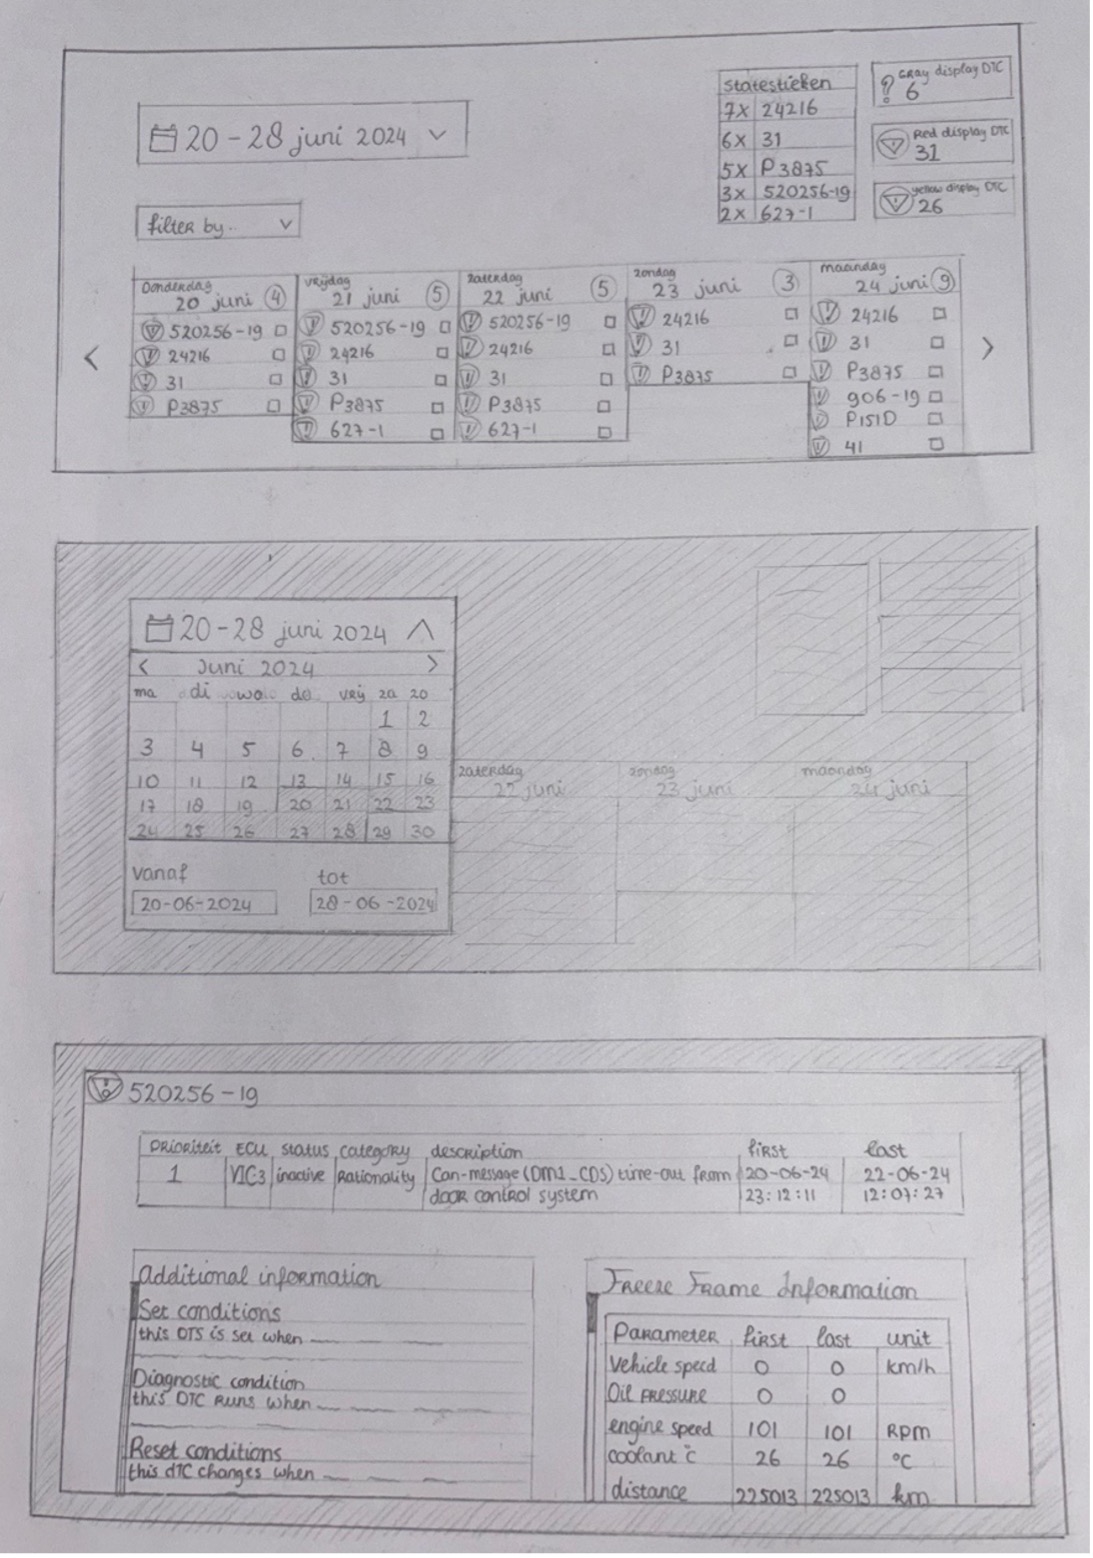 20 - 28 juni 2024
filter by..
Statestieken
7x 24216
6x 31
5x P3875
3x 520256-19
2x 627-1
Gray display DTC
6
Red display DTC
31
yellow display DTC
26
Donderdag
20 juni 4
520256-19
24216
31
P3875
vrijdag
21 juni 5
520256-19
24216
31
P3875
627-1
zaterdag
22 juni 5
520256-19
24216
31
P3875
627-1
zondag
23 juni 3
24216
31
P3875
maandag
24 juni 9
24216
31
P3875
906-19
P151D
41
20-28 juni 2024
< Juni 2024 >
ma di wo do vrij za zo
1 2
3 4 5 6 7 8 9
10 11 12 13 14 15 16
17 18 19 20 21 22 23
24 25 26 27 28 29 30
vanaf tot
20-06-2024 28-06-2024
zaterdag
22 juni
zondag
23 juni
maandag
24 juni
520256-19
Prioriteit ECU status category description first last
1 VIC3 inactive Rationality Can-message (DM1_CDS) time-out from 20-06-24 22-06-24
door control system 23:12:11 12:07:27
Additional information
Set conditions
this DTS is set when
Diagnostic condition
this DTC runs when
Reset conditions
this dTC changes when
Freeze Frame Information
Parameter first last unit
Vehicle speed 0 0 km/h
Oil pressure 0 0
engine speed 101 101 RPM
coolant °c 26 26 °C
distance 225013 225013 km